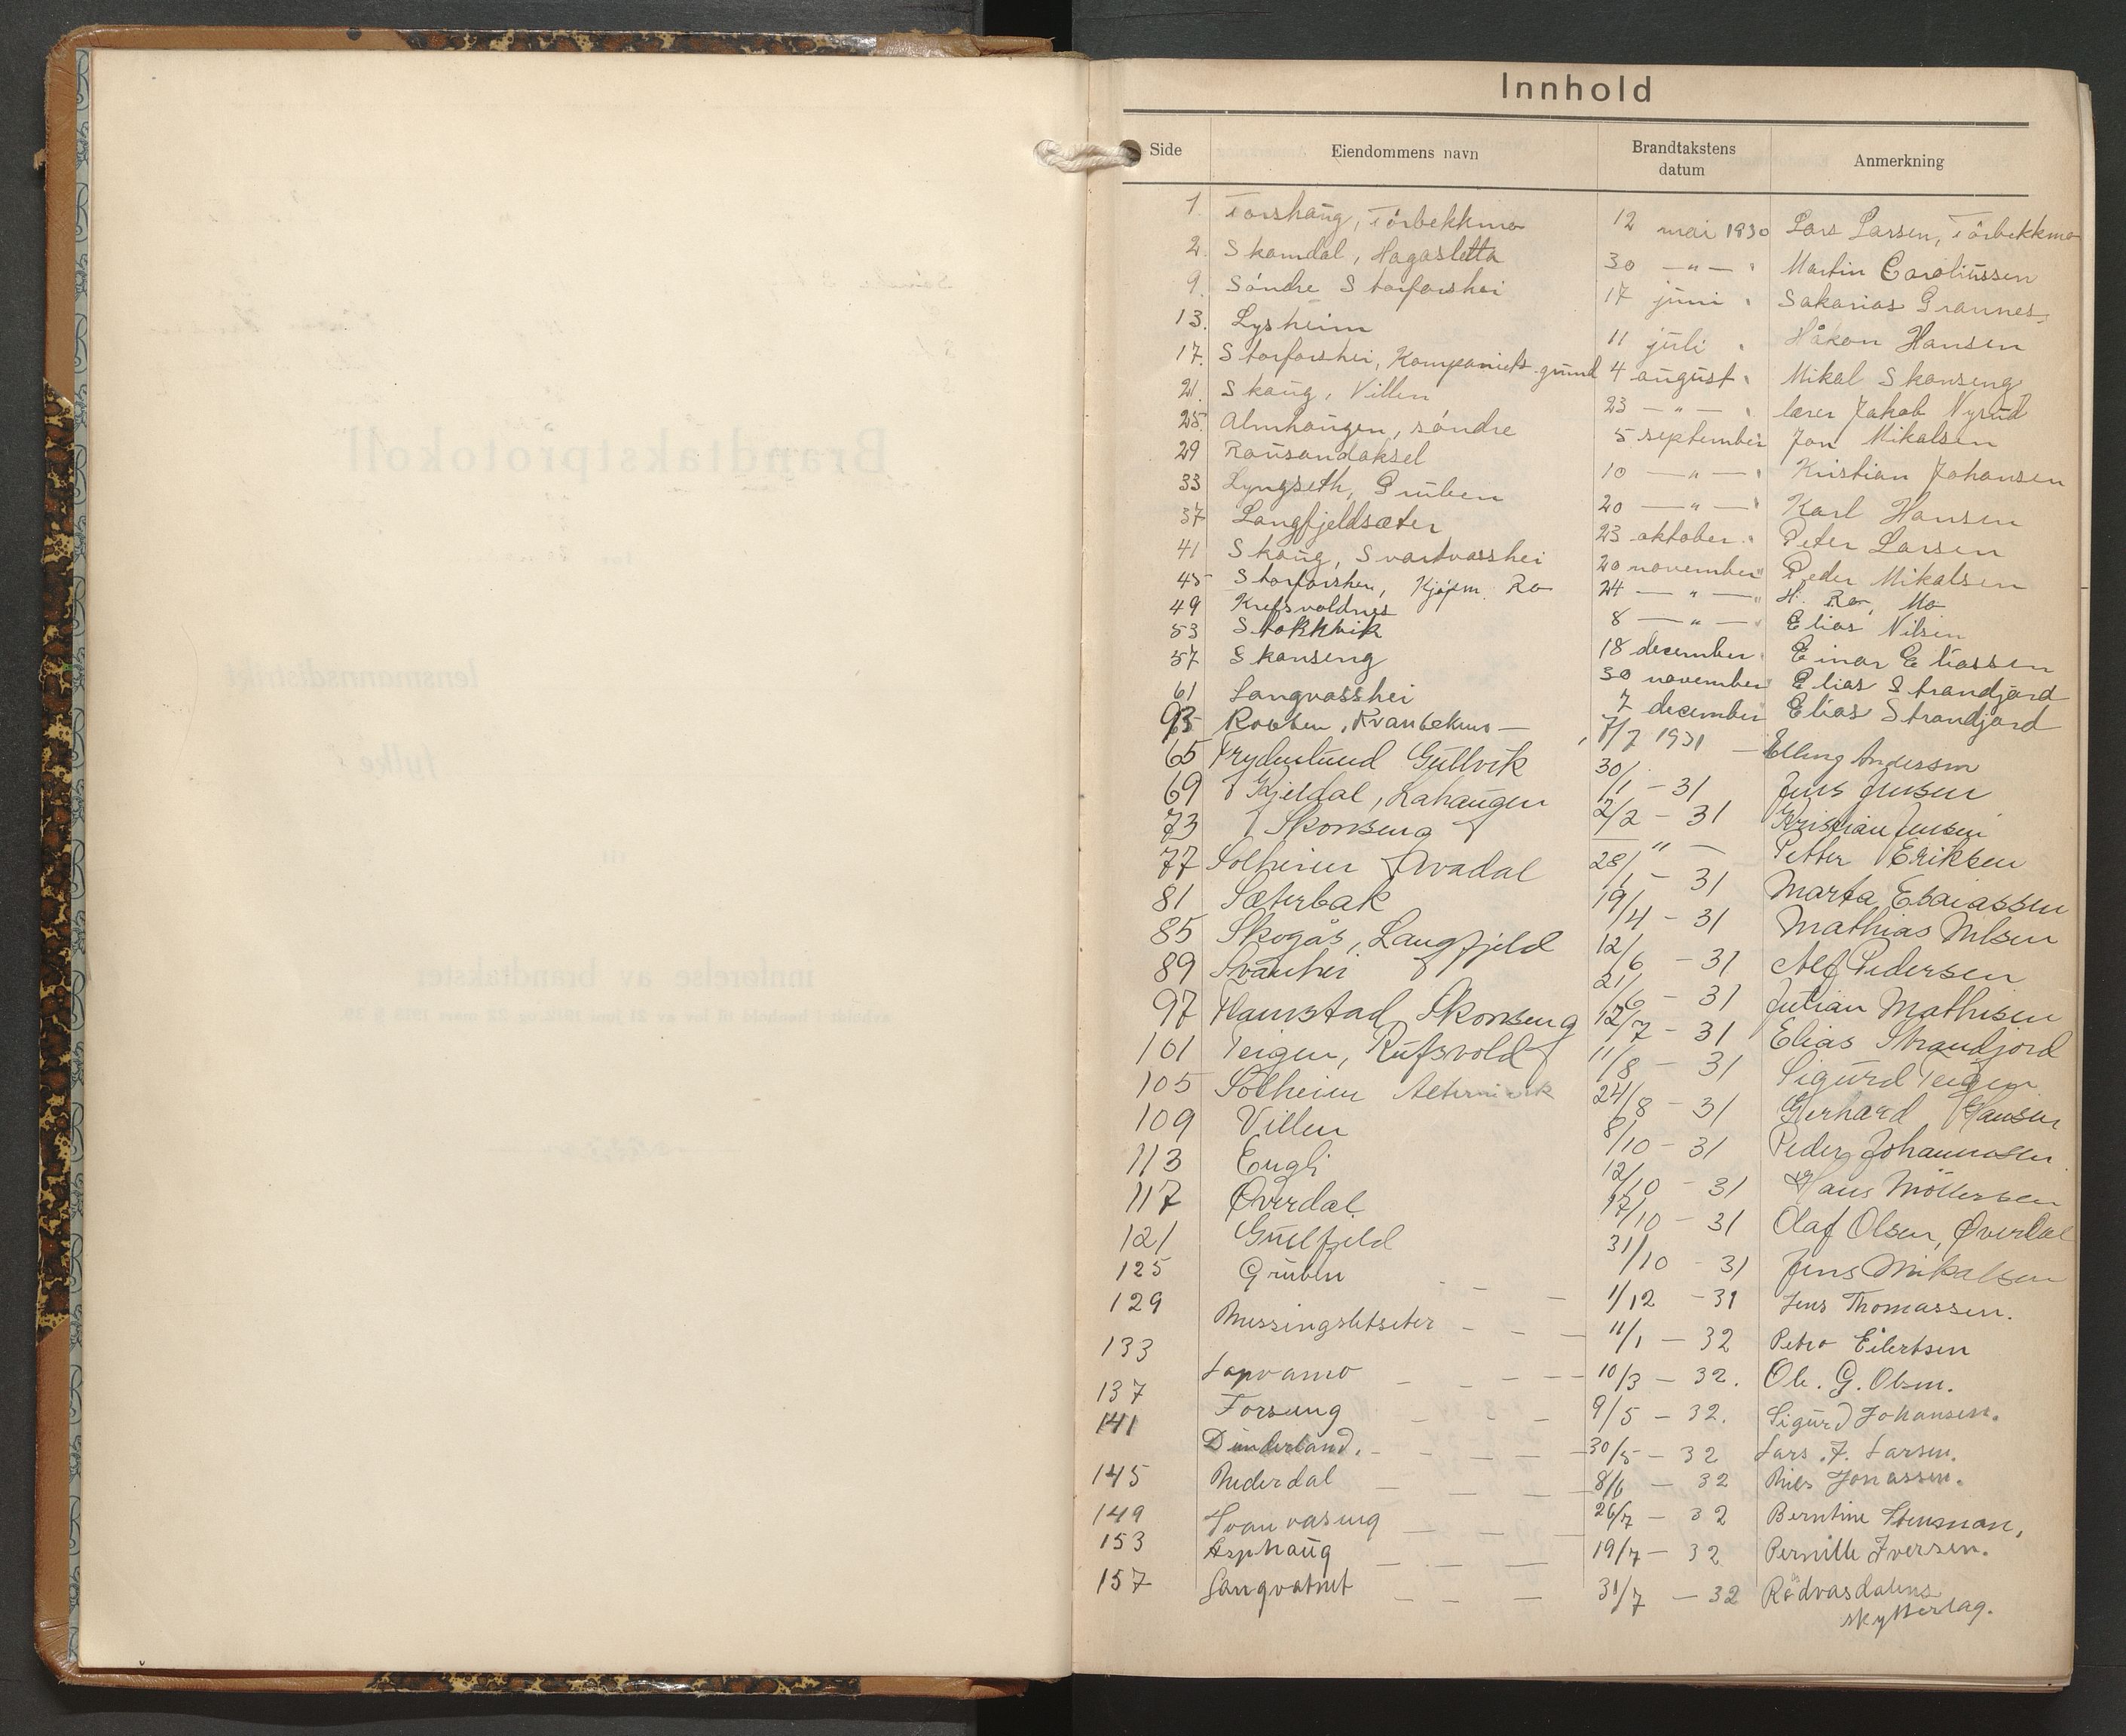 Innhold
Side Eiendommens navn Brandtakstens datum Anmerkning
1. Torshaug, Tørbekkmo 12 mai 1930 Lars Larsen, Tørbekkmo
2. Skamdal, Hagasletta 30 — " — " Martin Caroliussen
9. Søndre Storforshei 17 juni " Sakarias Grannes
13. Lysheim 11 juli " Håkon Hansen
17. Storforshei, Kompaniets grund 4 august " Mikal Skanseng
21. Skaug, Villen 23 — " — " lærer Jakob Nyrud
25. Almhaugen, søndre 5 september Jon Mikalsen
29 Rausandaksel 10 — " — " Kristian Johansen
33 Lyngseth, Gruben 20 — " — " Karl Hansen
37 Langfjeldsæter 23 oktober " Peter Larsen
41 Skaug, Svartvasshei 20 november " Peder Mikalsen
45 Storforshei, Kjøpm. Ro 24 — " — " H. Ro, Mo
49 Krefsvoldnes 8 — " — " Elias Nilsen
53 Stokkvik 18 december " Einar Eliassen
57 Skanseng 30 november " Elias Strandjord
61 Langvasshei 7 december Elias Strandjord
93 7/7 1931 — Elling Andersen
65 Frydenlund Gullvik 30/1 – 31 Jens Jensen
69 Kjeldal, Lahaugen 2/2 – 31 Kristian Jensen
73 Skonseng — " — Petter Eriksen
77 Solheim Avadal 28/1 – 31 Marta Esaiassen
81 Sæterbak 19/4 – 31 Mathias Nilsen
85 Skogås, Langfjeld 12/6 – 31 Alf Pedersen
89 Svanhei 21/6 – 31 Julian Mathisen
97 Hamstad Skonseng 12/7 – 31 Elias Strandjord
101 Teigen, Rufsvold 11/8 – 31 Sigurd Teigen
105 Solheim 24/8 – 31 Gerhard Hansen
109 Villen 8/10 – 31 Peder Johannesen
113 Engli 12/10 – 31 Hans Möllersen
117 Øverdal 17/10 – 31 Olaf Olsen, Øverdal
121 Gullfjeld 31/10 – 31 Jens Mikalsen
125 Gruben – – – 1/12 – 31 Jens Thomassen.
129 Messingsletseter – – — 11/1 – 32 Petro Eilertsen
133 Lapvamo – – – — 10/3 – 32. Ole. G. Olsen.
137 Forseng – – – 9/5 – 32. Sigurd Johansen.
141 Dunderland. – – — 30/5 – 32 Lars. J. Larsen.
145 Nederdal – — — 8/6 – 32 Nils Jonassen.
149 Svanvaseng — – — 26/7 – 32 Berntine Stensman,
153 Asphaug — – — 19/7 – 32 Pernille Iversen.
157 Langvatnet – – — 31/7 – 32 Rødvasdalens
skytterlag.